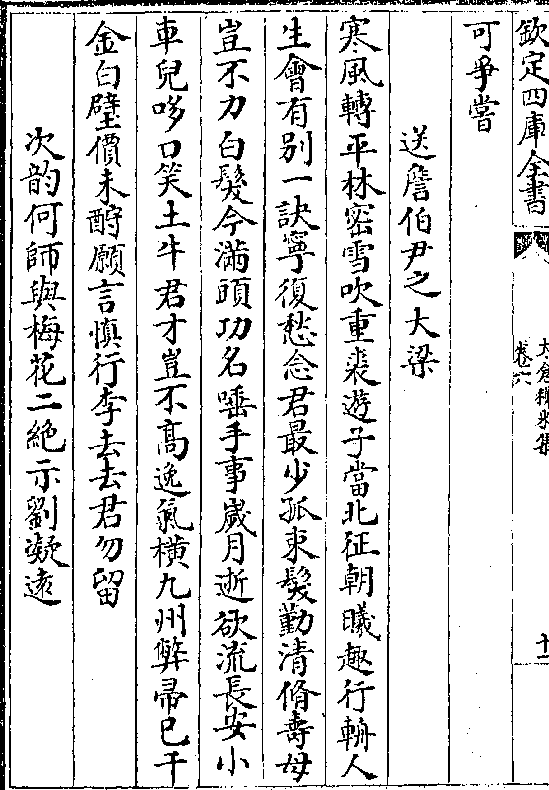 欽定四庫全書
太倉稊米集
卷六
十二
可爭嘗
送詹伯尹之大梁
寒風轉平林密雪吹重裘遊子當北征朝曦趣行輈人
生會有别一訣寧復愁念君最少孤束髮勤清脩壽母
豈不力白髮今滿頭功名唾手事歲月逝欲流長安小
車兒哆口笑土牛君才豈不髙逸氣橫九州弊帚已千
金白璧價未酧願言慎行李去去君勿留
次韵何師與梅花二絶示劉凝逺